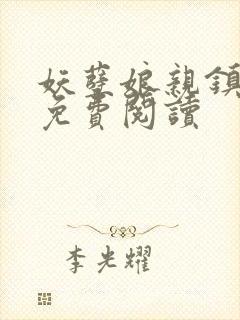 妖孽娘親鎮
免費閱讀
李光耀